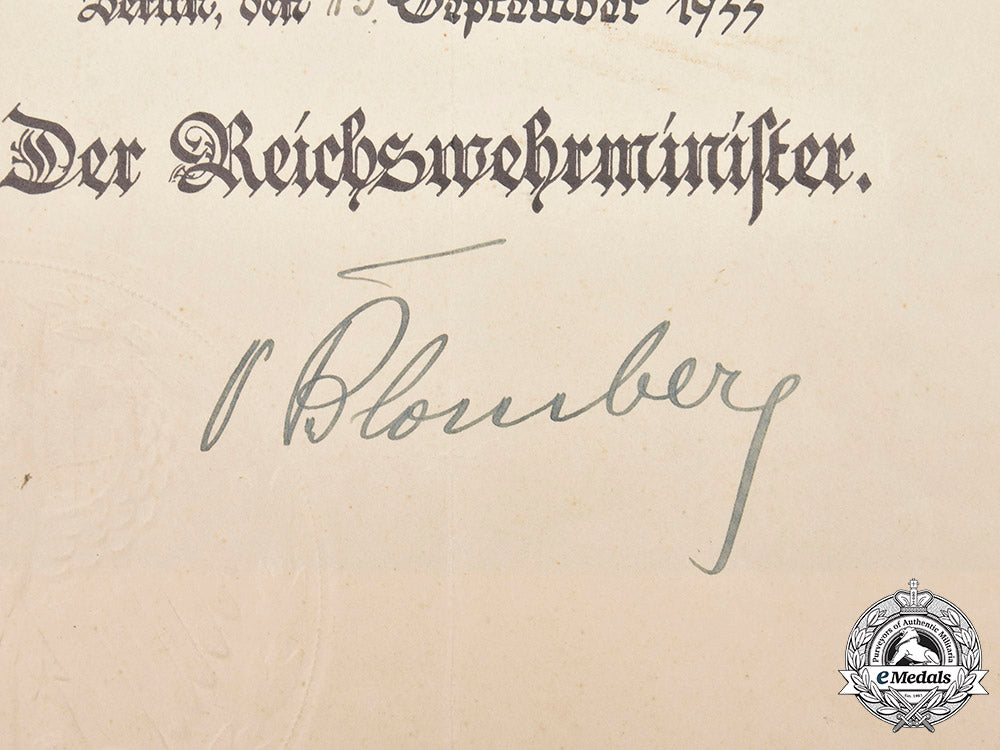 Berlin, den 15. September 1933
Der Reichswehrminister.
v Blomberg
Purveyors of Authentic Militaria
eMedals